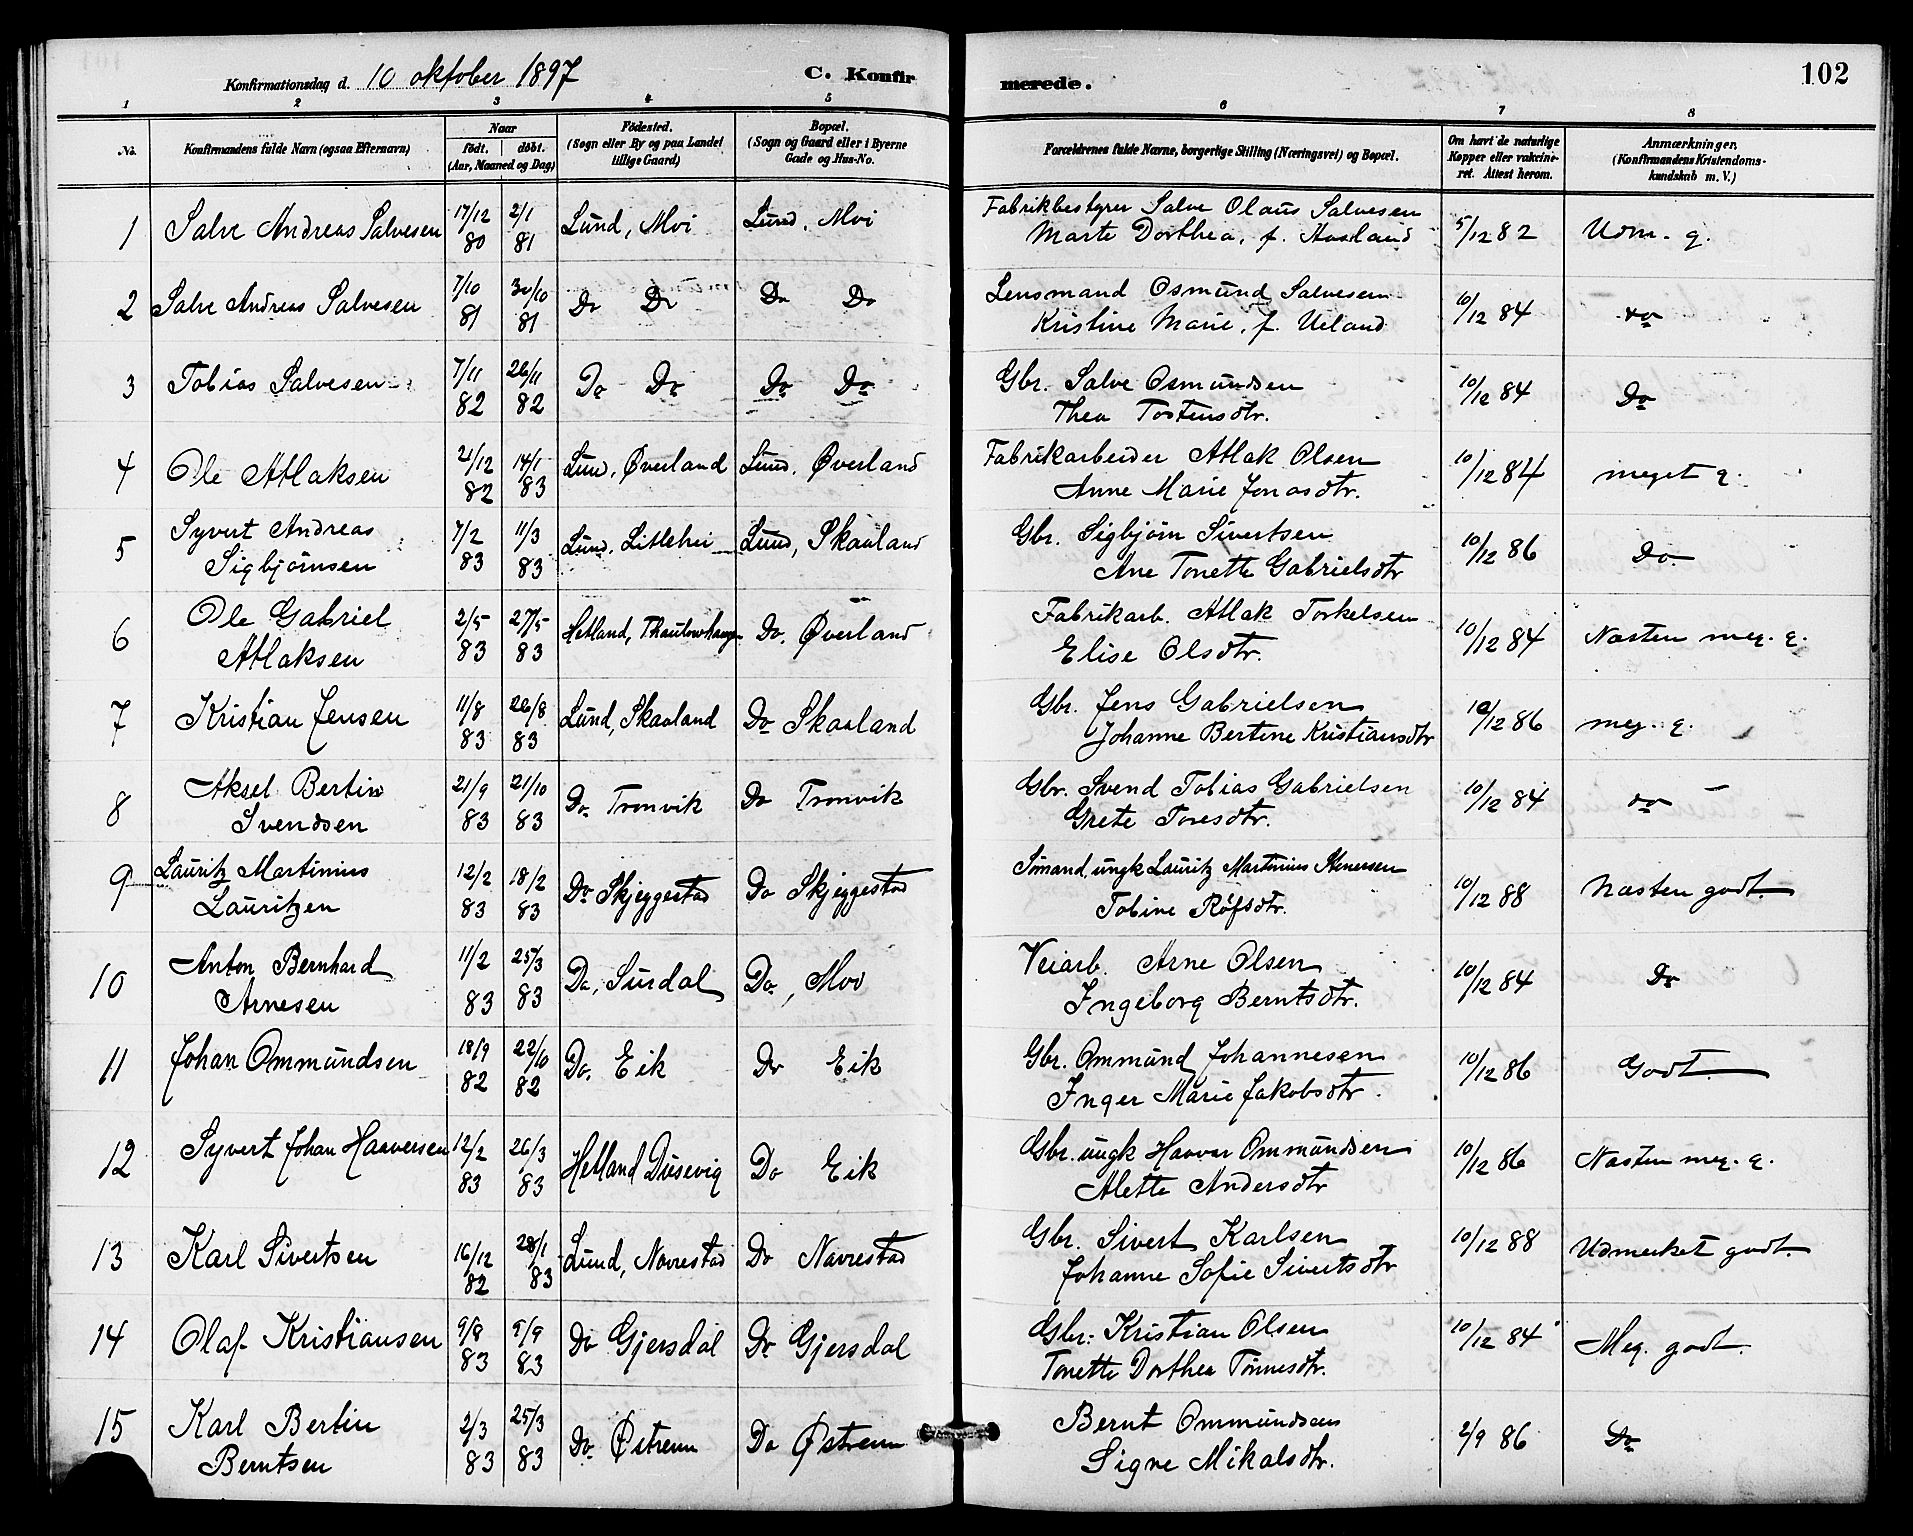 102
Konfirmationsdag d. 10 oktober 1897 C. Konfirmerede.
1 2 3 4 5 6 7 8
No. Konfirmandens fulde Navn (ogsaa Efternavn) Naar født. døbt. (Aar, Maaned og Dag) Fødested. (Sogn eller By og paa Landet tillige Gaard) Bopæl. (Sogn og Gaard eller i Byerne Gade og Hus-No. Forældrenes fulde Navne, borgerlige Stilling (Næringsvei) og Bopæl. Om havt de naturlige Kopper eller vakcineret. Attest herom. Anmærkninger. (Konfirmandens Kristendomskundskab m. V.)
1 Salve Andreas Salvesen 17/12 80 2/1 81 Lund, Moi Lund, Moi Fabrikbestyrer Salve Olaus Salvesen 5/12 82 Udm. g.
Marte Dorthea, f. Aasland
2 Salve Andreas Salvesen 7/10 81 30/10 81 Do Do Do Do Lensmand Osmund Salvesen 10/12 84 do
Kristine Marie, f. Ueland
3 Tobias Salvesen 7/11 82 26/11 82 Do Do Do Do Gbr. Salve Osmundsen 10/12 84 Do
Thea Tostensdtr.
4 Ole Atlaksen 21/12 82 14/1 83 Lund, Øverland Lund, Øverland Fabrikarbeider Atlak Olsen 10/12 84 meget g.
Anne Marie Jonasdtr.
5 Syvert Andreas 7/2 83 11/3 83 Lund, Litlehei Lund, Skaaland Gbr. Sigbjørn Sivertsen 10/12 86 Do.
Sigbjørnsen Ane Tonette Gabrielsdtr
6 Ole Gabriel 2/5 83 27/5 83 Hetland, Do. Øverland Fabrikarb. Atlak Torkelsen 10/12 84 Næsten meg. g.
Atlaksen Elise Olsdtr.
7 Kristian Jensen 11/8 83 26/8 83 Lund, Skaaland Do Skaaland Gbr. Jens Gabrielsen 10/12 86 meg. g.
Johanne Bertine Kristiansdtr
8 Aksel Bertin 21/9 83 21/10 83 Do. Tronvik Do Tronvik Gbr. Svend Tobias Gabrielsen 10/12 84 do
Svendsen Grete Toresdtr.
9 Lauritz Martinius 12/2 83 18/2 83 Do. Skjeggestad Do Skjeggestad Sømand, ungk Lauritz Martinius Stenersen 10/12 88 Næsten godt.
Lauritzen Tobine Røfsdtr.
10 Anton Bernhard 11/2 83 25/3 83 Do, Surdal Do, Moi Veiarb. Arne Olsen 10/12 84 Do
Arnesen Ingeborg Berntsdtr.
11 Johan Ommundsen 18/9 82 22/10 82 Do. Eik Do Eik Gbr. Ommund Johannesen 10/12 86 Godt.
Inger Marie Jakobsdtr.
12 Syvert Johan Haaversen 12/2 83 26/3 83 Hetland Dusevig Do Eik Gbr. ungk Haavar Ommundsen 10/12 86 Næsten meg. g.
Alette Andersdtr
13 Karl Sivertsen 16/12 82 28/1 83 Lund, Navrestad Do Navrestad Gbr. Sivert Karlsen 10/12 88 Udmerket godt.
Johanne Sofie Sivertsdtr
14 Olaf Kristiansen 9/8 83 9/9 83 Do Gjersdal Do Gjersdal Gbr. Kristian Olsen 10/12 84 Meg. godt.
Tonette Dorthea Tønnesdtr.
15 Karl Bertin 2/3 83 25/3 83 Do. Østrem Do Østrem Bernt Ommundsen 2/9 86 Do
Berntsen Signe Mikalsdtr.